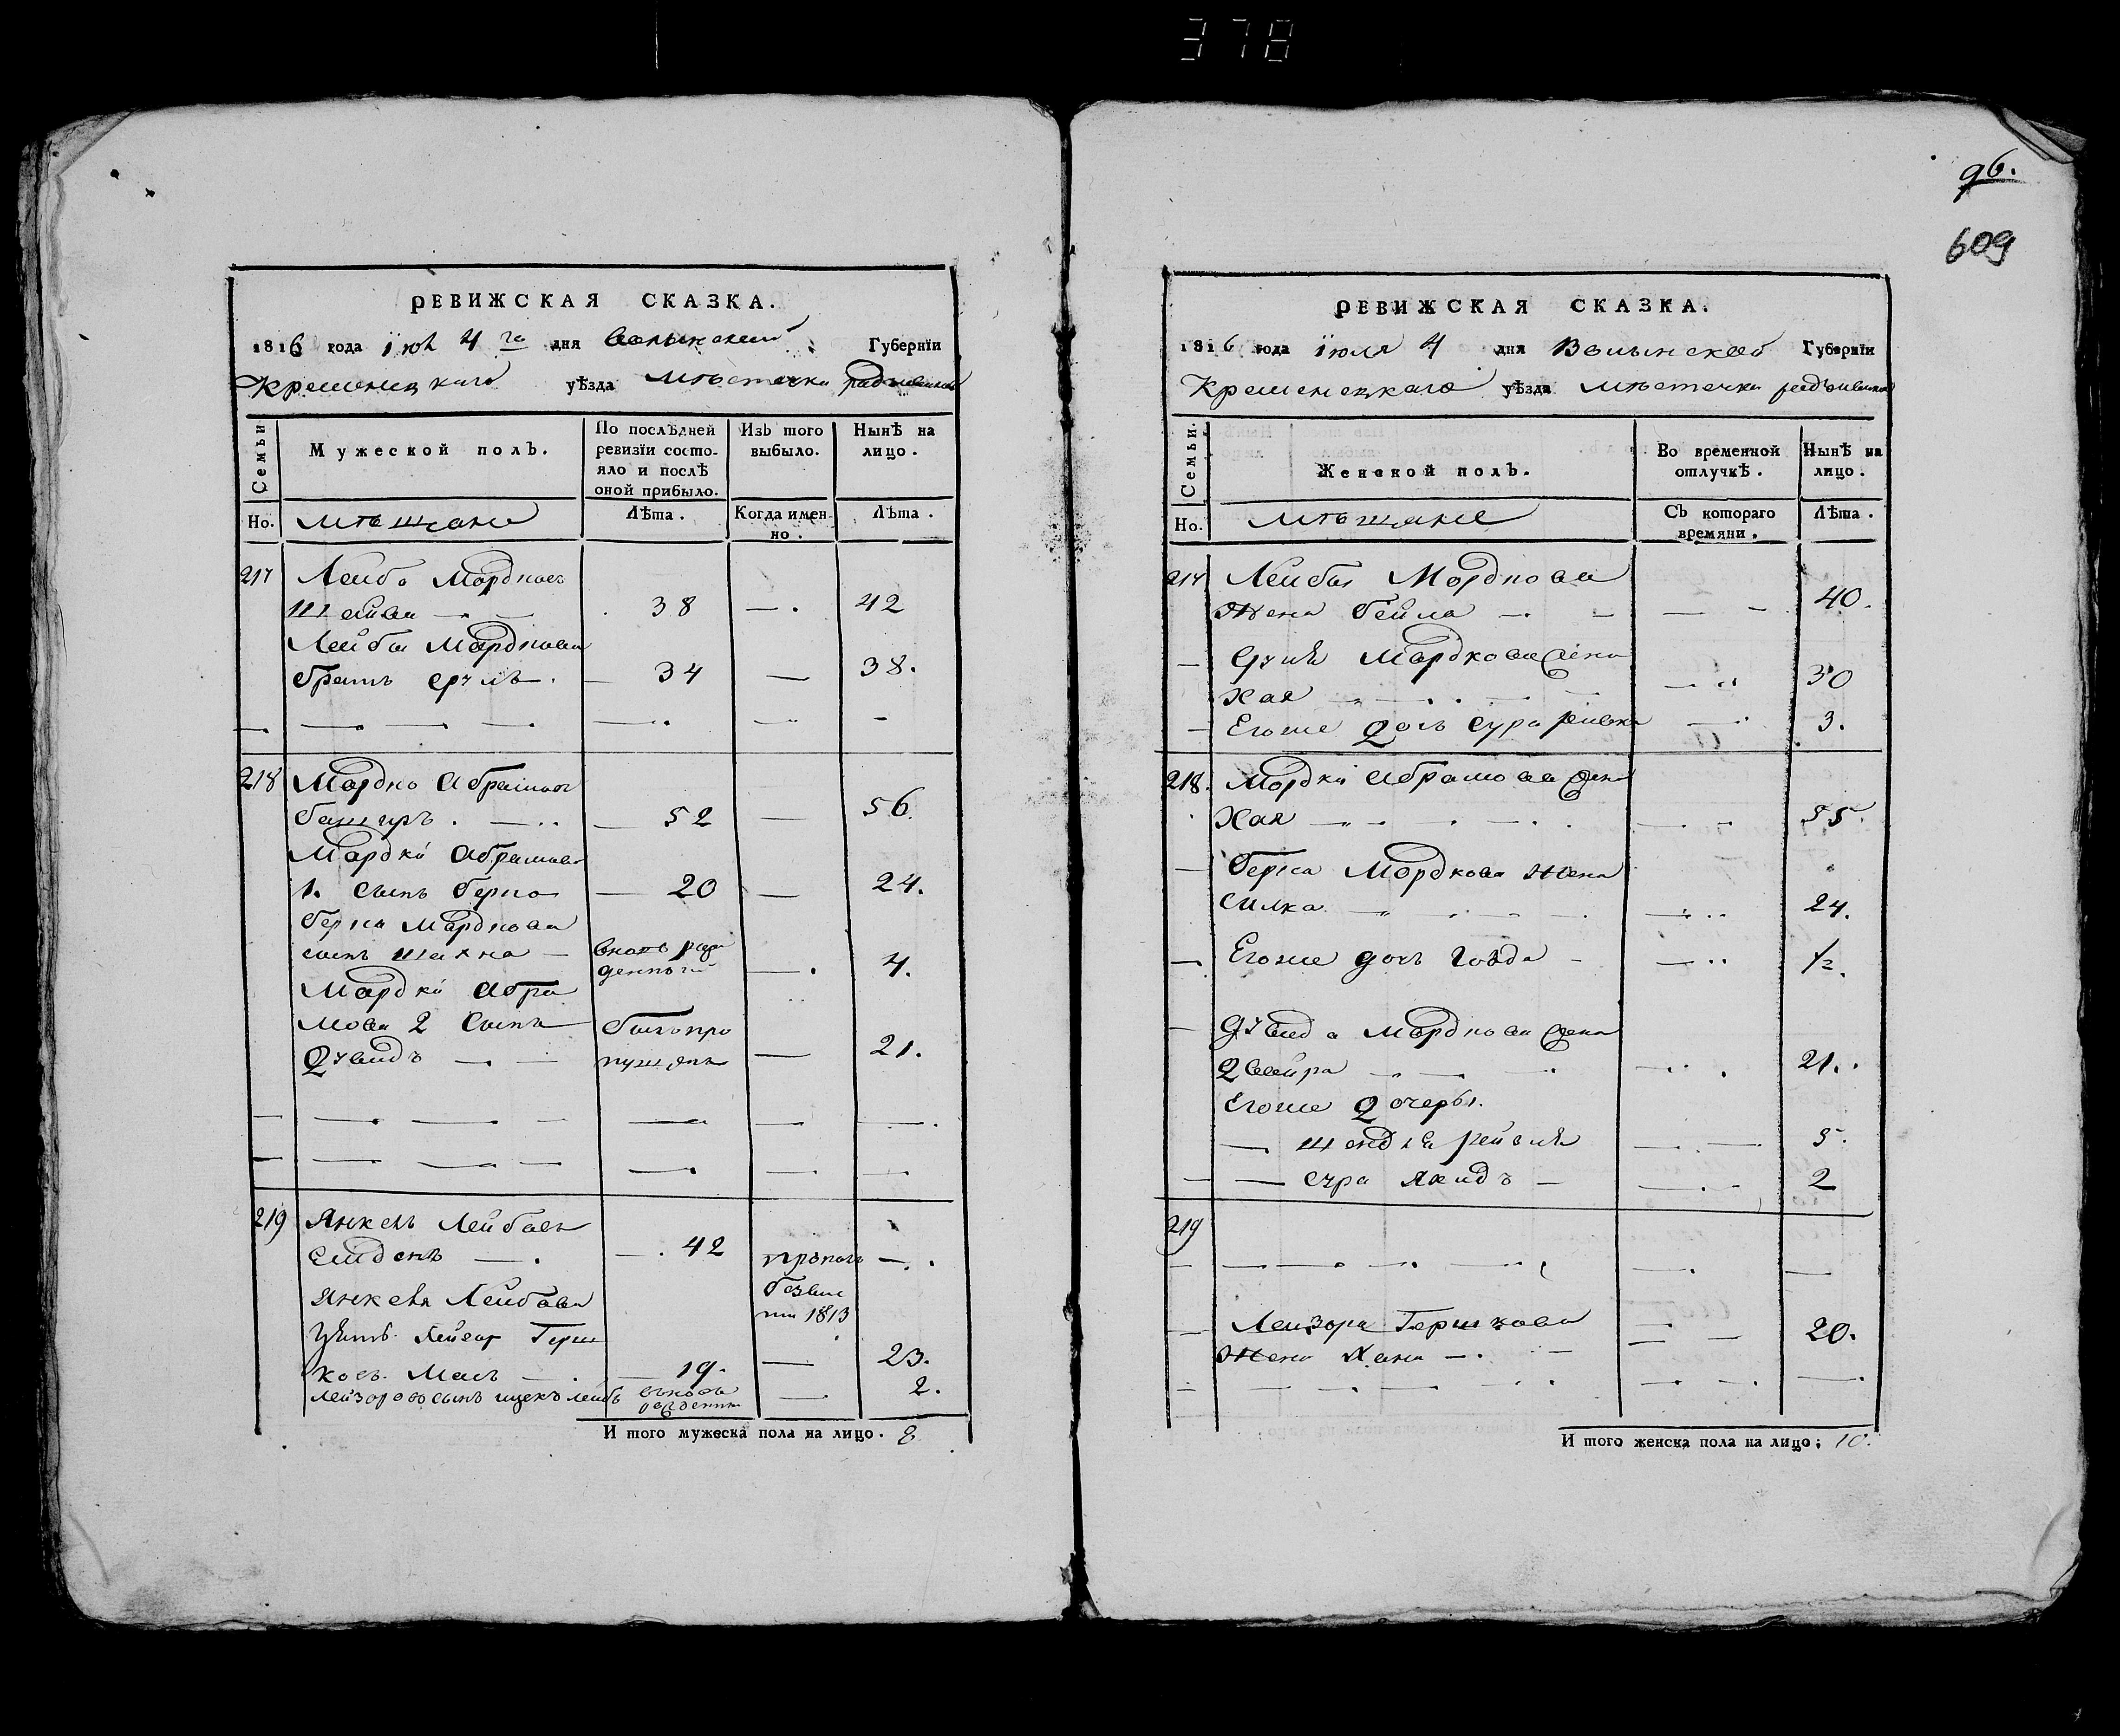 378
96.
609
РЕВИЖСКАЯ СКАЗКА.
1816 года іюл 4 го дня Волынской Губернїи
Кременецкаго уѣзда мѣстечка
Семьи
Мужеской полъ.
По послѣдней ревизїи состояло и послѣ оной прибыло.
Изъ того выбыло.
Нынѣ на лицо.
Но.
мѣщане
Лѣта.
Когда именно.
Лѣта.
217 Лейба Мордковъ
38 — 42
Лейбы Мордкова
братъ Сруль 34 — 38.
218 Мордко Абрамов
52 — 56.
Мордки Абрамова
1. сынъ Берко — 20 — 24.
Берка Мордкова
сынъ Шахна — вновь рож
денный — 4.
Мордки Абра
мова 2 сынъ былъ про
Дувидъ пущенъ — 21.
219 Янкель Лейбовъ
— 42 пропалъ —
Янкеля Лейбова безвес
ти 1813
зять Лейзор Герш
ковъ 19. — 23.
Лейзоровъ сынъ ицекъ лейбъ вновь рожденный — 2.
И того мужеска пола на лицо. 8
РЕВИЖСКАЯ СКАЗКА.
1816 года іюля 4 дня Волынской Губернїи
Кременецкаго уѣзда мѣстечка
Семьи.
Женской полъ.
Во временной отлучкѣ.
Нынѣ на лицо.
Но.
мѣщане
Съ котораго времяни.
Лѣта.
217 Лейбы Мордкова
Жена Бейла — 40.
— Сруля Мордкова жена
Хая 30
— Егоже дочь Сура ривка 3.
218. Мордки Абрамова жена
Хая 55
— Берка Мордкова жена
Силка 24.
— Егоже дочь 1/2.
— Дувида Мордкова жена
Двейра 21.
Егоже дочеры.
5.
— Сура 2
219
— Лейзора Гершкова
Жена Хана — 20.
И того женска пола на лицо: 10.